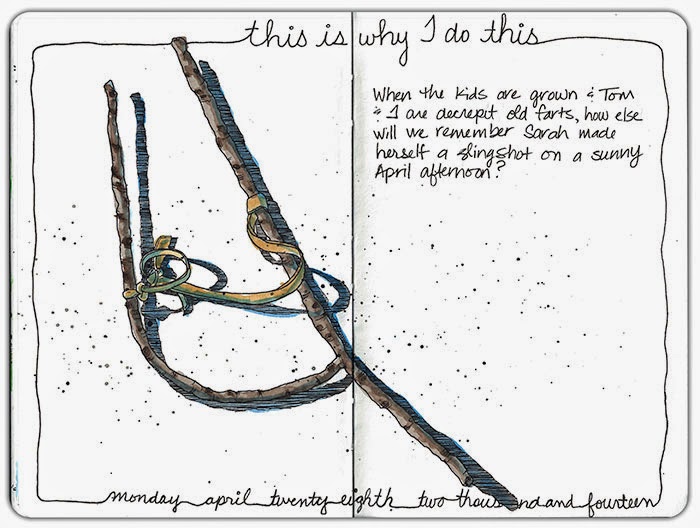 this is why I do this
When the kids are grown & Tom
& I are decrepit old farts, how else
will we remember Sarah made
herself a slingshot on a sunny
April afternoon?
monday april twenty eighth two thousand and fourteen